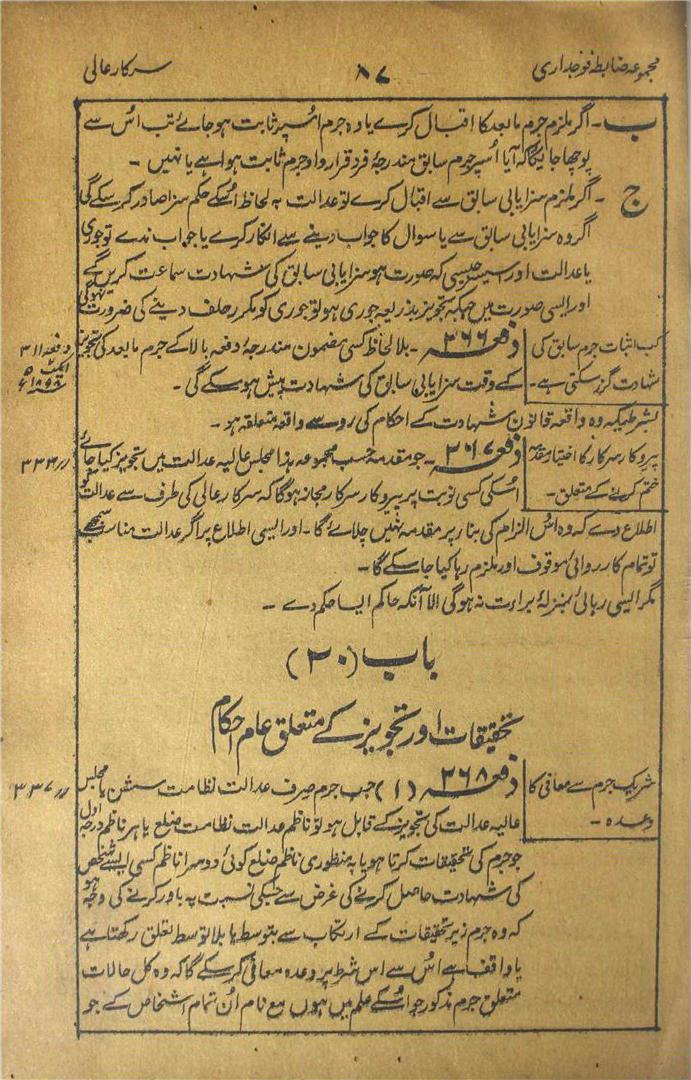 مجموعہ ضابطہ فوجداری
۸۷
سرکار عالی
ب - اگر ملزم جرم مابعد کا اقبال کرے یا وہ جرم اُسپر ثابت ہو جائے تب اُس سے
پوچھا جائیگا کہ آیا اُسپر جرم سابق مندرجۂ فرد قرارداد جرم ثابت ہوا ہے یا نہیں -
ج - اگر ملزم سزایابی سابق سے اقبال کرے تو عدالت بہ لحاظ اُسکے حکم سزا صادر کر سکے گی
اگر وہ سزایابی سابق سے یا سوال کا جواب دینے سے انکار کرے یا جواب ندے تو جوری
یا عدالت اور اسیسر جیسی کہ صورت ہو سزایابی سابق کی شہادت سماعت کریں گے
اور ایسی صورت میں جبکہ تجویز بذریعہ جوری ہو تو جوری کو مکرر حلف دینے کی ضرورت نہوگی
کب اثبات جرم سابق کی
شہادت گزر سکتی ہے -
دفعہ ۳۶۶ - بلا لحاظ کسی مضمون مندرجۂ دفعہ بالا کے جرم مابعد کی تجویز
کے وقت سزایابی سابق کی شہادت پیش ہو سکے گی -
دفعہ ۳۱۱
ایکٹ ۵
۱۸۹۸ء
بشرطیکہ وہ واقعہ قانون شہادت کے احکام کی رو سے واقعہ متعلقہ ہو -
پیروکار سرکار کا اختیار مقدمہ
ختم کرنے کے متعلق -
دفعہ ۳۶۷ - جو مقدمہ حسب مجموعہ ہذا مجلس عالیہ عدالت میں تجویز کیا جائے
اُسکی کسی نوبت پر پیروکار سرکار مجاز ہوگا کہ سرکار عالی کی طرف سے عدالت کو
〃 ۳۳۳
اطلاع دے کہ وہ اُس الزام کی بنا پر مقدمہ نہیں چلائے گا - اور ایسی اطلاع پر اگر عدالت مناسب سمجھے
تو تمام کارروائی موقوف اور ملزم رہا کیا جا سکے گا -
مگر ایسی رہائی بمنزلۂ براءت نہ ہوگی الا آنکہ حاکم ایسا حکم دے -
باب (۳۰)
تحقیقات اور تجویز کے متعلق عام احکام
شریک جرم سے معافی کا
وعدہ -
دفعہ ۳۶۸ (۱) جب جرم صرف عدالت نظامت سشن یا مجلس
〃 ۳۳۷
عالیہ عدالت کی تجویز کے قابل ہو تو ناظم عدالت نظامت ضلع یا ہر ناظم درجہ اول
جو جرم کی تحقیقات کرتا ہو یا بہ منظوری ناظم ضلع کوئی دوسرا ناظم کسی ایسے شخص
کی شہادت حاصل کرنے کی غرض سے جسکی نسبت یہ باور کرنے کی وجہ ہو
کہ وہ جرم زیر تحقیقات کے ارتکاب سے بتوسط یا بلا توسط تعلق رکھتا ہے
یا واقف ہے اُس سے اس شرط پر وعدہ معافی کر سکے گا کہ وہ کل حالات
متعلق جرم مذکور جو اُسکے علم میں ہوں مع نام اُن تمام اشخاص کے جو